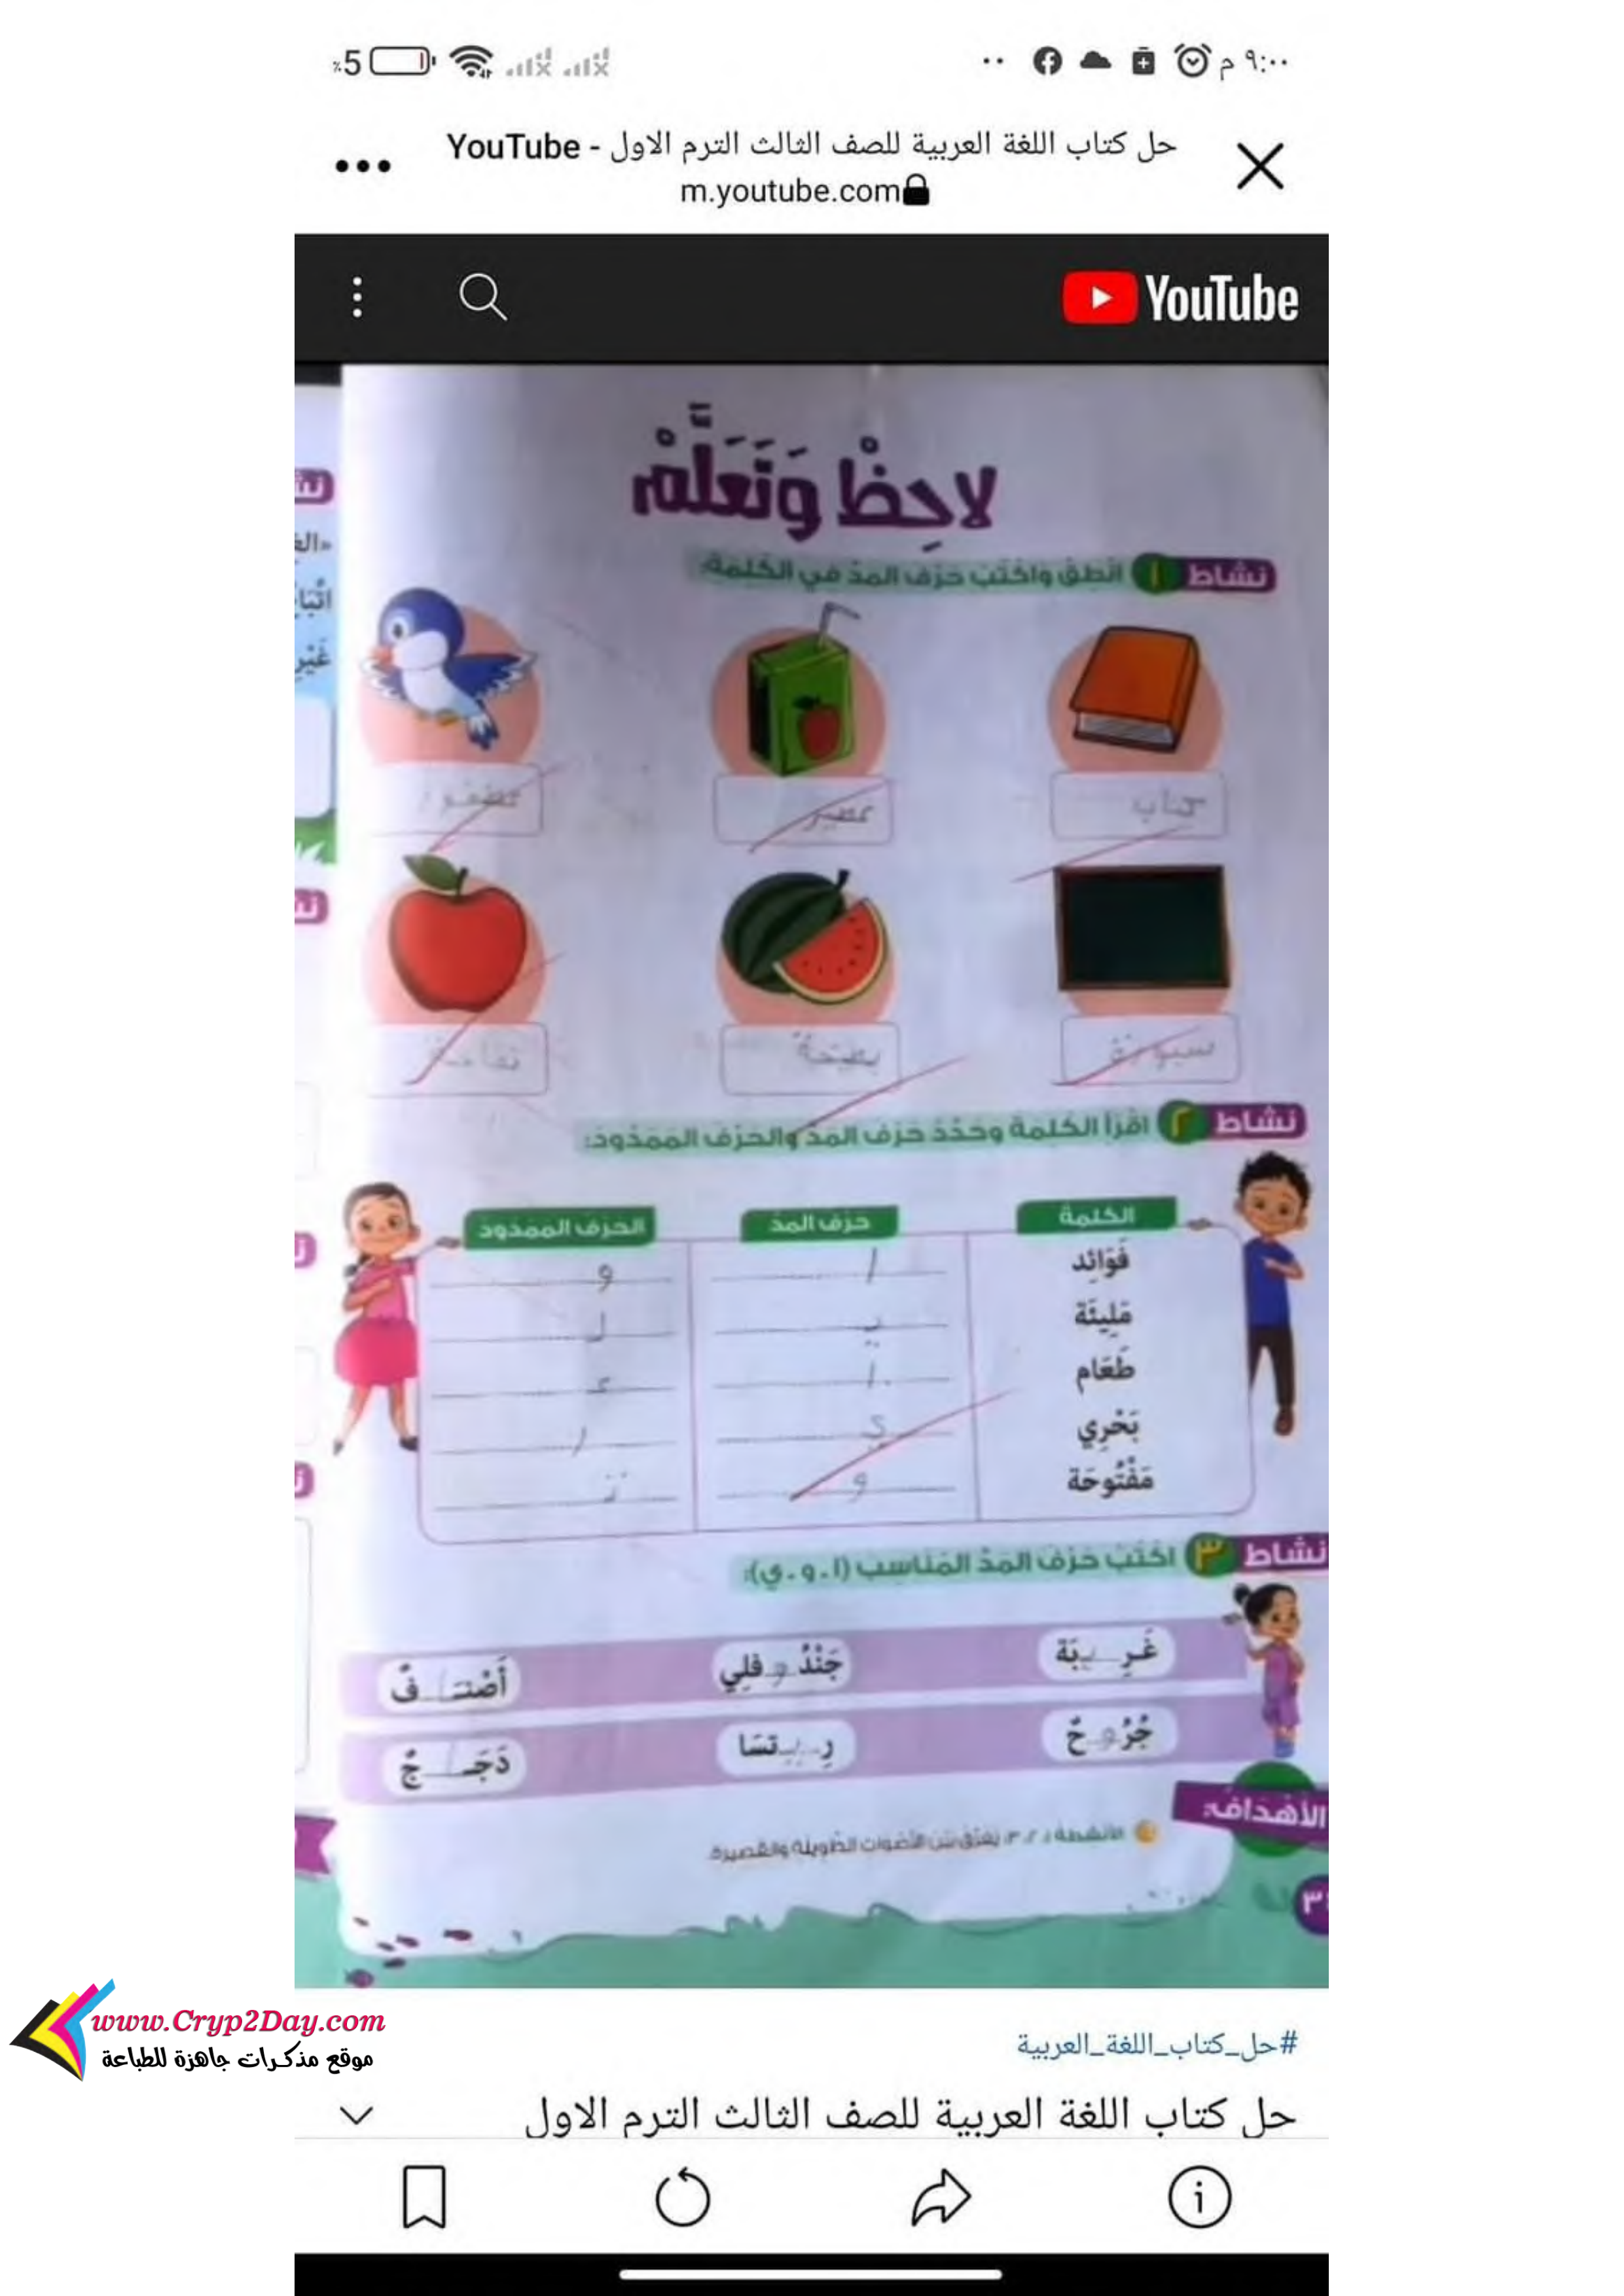 ٩:٠٠ م
٪5
حل كتاب اللغة العربية للصف الثالث الترم الاول - YouTube
m.youtube.com
YouTube
لاحِظْ وَتَعَلَّمْ
نشاط ١ انْطِقْ وَاكْتُبْ حَرْفَ المَدِّ في الكَلِمَةِ:
كتاب
عصير
عصفور
سبورة
بطيخة
تفاحة
نشاط ٢ اقْرَأ الكَلِمَةَ وحَدِّدْ حَرْفَ المَدِّ والحَرْفَ المَمْدُودَ:
الكلمة حرف المد الحرف الممدود
فَوَائِد ا و
مَلِيئَة يـ لـ
طَعَام ا عـ
بَحْرِي ي ر
مَفْتُوحَة و تـ
نشاط ٣ اكْتُبْ حَرْفَ المَدِّ المُنَاسِبَ (ا . و . ي):
غَرِيـبَة جَنْدُوفلِي أَصْنَـافٌ
جُرُوحٌ رِيـتسَا دَجَـاجٌ
الأهداف:
الأنشطة ١، ٢، ٣: يُفَرِّقُ بَيْنَ الأَصْوَاتِ الطَّوِيلَةِ وَالقَصِيرَةِ.
نش
غَيْرِ
www.Cryp2Day.com
موقع مذكرات جاهزة للطباعة
#حل_كتاب_اللغة_العربية
حل كتاب اللغة العربية للصف الثالث الترم الاول